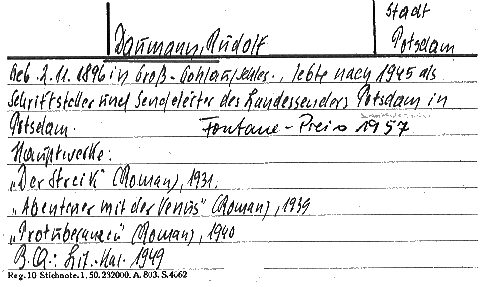 Stadt
Daumann, Rudolf Potsdam
Geb. 2.11.1896 in Groß-Gohlau/Schles., lebte nach 1945 als
Schriftsteller und Sendeleiter des Landessenders Potsdam in
Potsdam. Fontane-Preis 1957
Hauptwerke:
„Der Streik" (Roman), 1931.
„Abenteuer mit der Venus" (Roman), 1939
„Protuberanzen" (Roman), 1940
B.Q.: Lit.-Kal. 1949
Reg. 10 Stichnote. 1, 50. 232000. A. 803. S. 4662